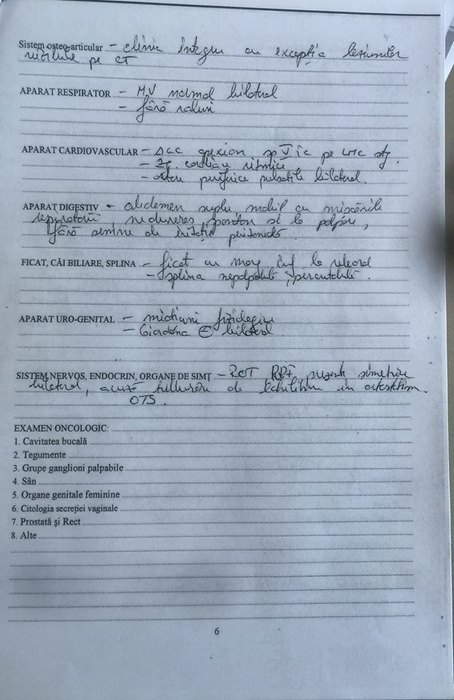 Sistem osteo-articular – clinic integru cu exceptia lesiunilor
vizibile pe CT
APARAT RESPIRATOR – MV normal bilateral
– fără raluri
APARAT CARDIOVASCULAR – soc apexian sp V ic pe LMC stg.
– zg cardiace ritmice
– artere periferice pulsatile bilateral.
APARAT DIGESTIV – abdomen suplu, mobil cu miscările
respiratorii, nedureros spontan si la palpare,
fără semne de iritatie peritoneală
FICAT, CĂI BILIARE, SPLINA – ficat cu marg inf la rebord
– splina nepalpabilă, percutabilă.
APARAT URO-GENITAL – mictiuni fiziologice
– Giordano bilateral
SISTEM NERVOS, ENDOCRIN, ORGANE DE SIMŢ – ROT prezente simetric
bilateral, acuză tulburări de echilibru in ortostatism
OTS.
EXAMEN ONCOLOGIC:
1. Cavitatea bucală
2. Tegumente
3. Grupe ganglioni palpabile
4. Sân
5. Organe genitale feminine
6. Citologia secreţiei vaginale
7. Prostată şi Rect
8. Alte
6